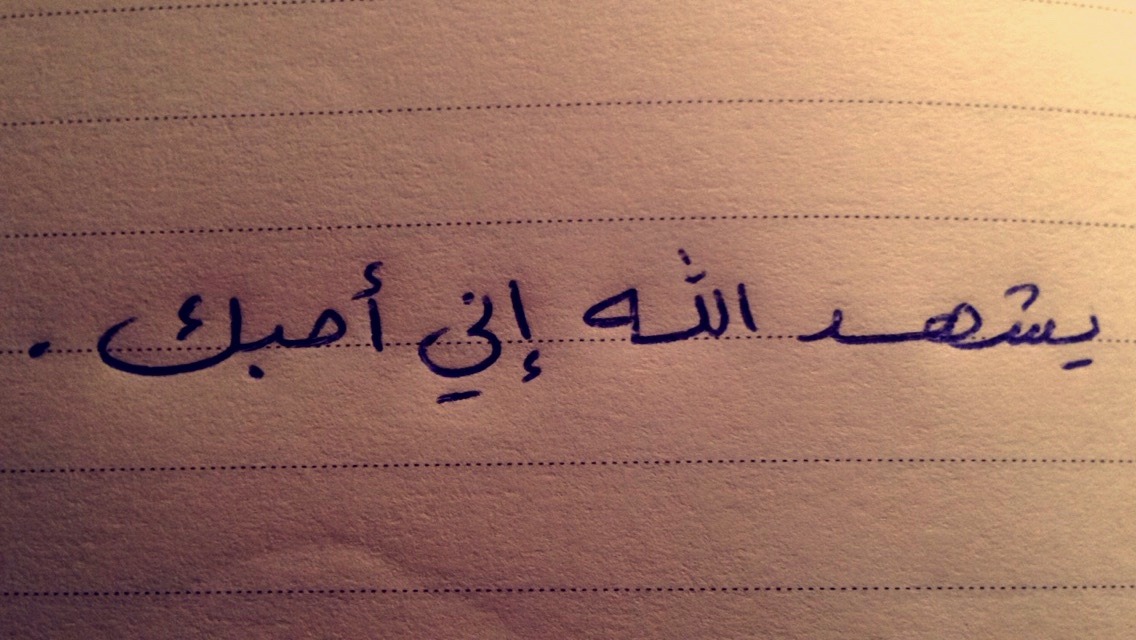 يشهد الله إني أحبك .